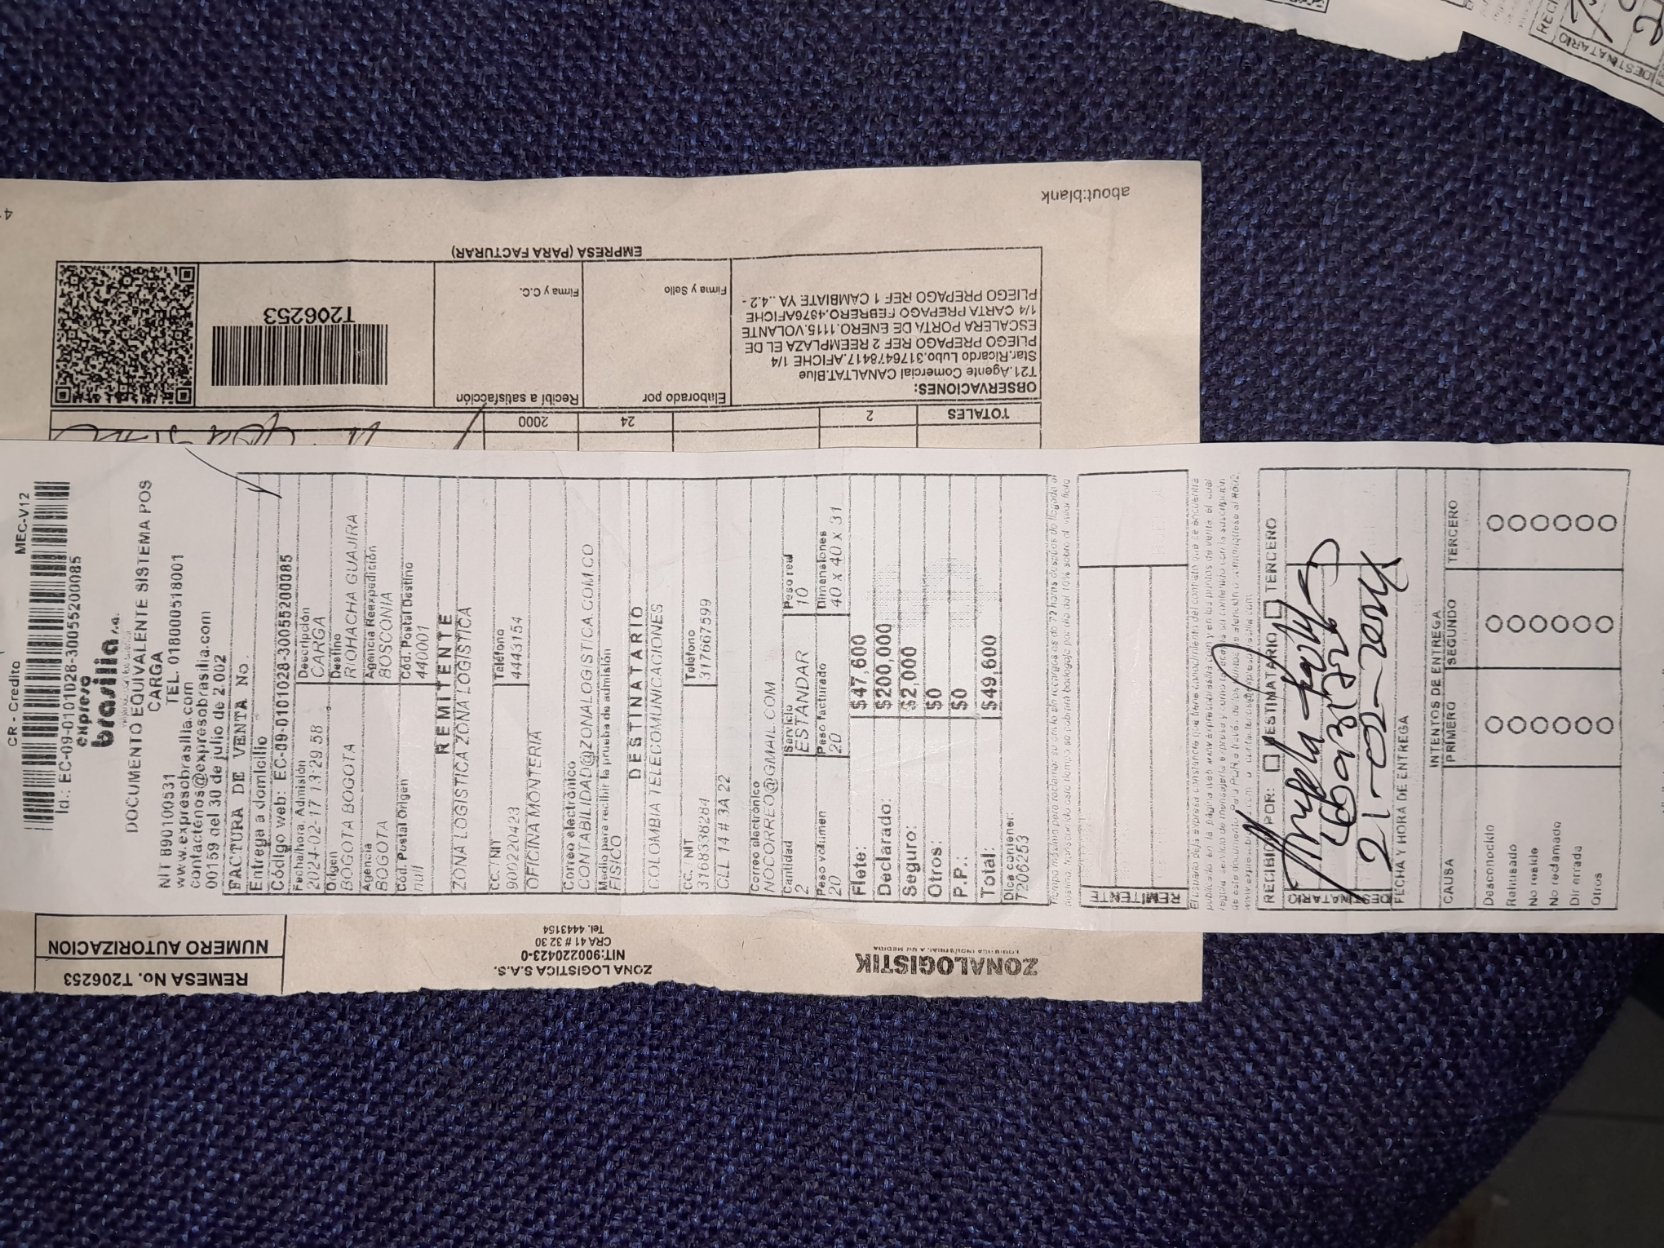 CR - Credito MEC-V12
Id.: EC-09-0101028-30055200085
expreso
brasilia s.a.
DOCUMENTO EQUIVALENTE SISTEMA POS
CARGA
NIT 890100531 TEL. 018000518001
www.expresobrasilia.com
contactenos@expresobrasilia.com
00159 del 30 de julio de 2.002
FACTURA DE VENTA No.
Entrega a domicilio
Código web: EC-09-0101028-30055200085
Fecha/hora Admisión Descripción
2024-02-17 13:29:58 CARGA
Origen Destino
BOGOTA BOGOTA RIOHACHA GUAJIRA
Agencia Agencia Reexpedición
BOGOTA BOSCONIA
Cód. Postal Origen Cód. Postal Destino
null 440001
REMITENTE
ZONA LOGISTICA ZONA LOGISTICA
CC. NIT Teléfono
900220423 4443154
OFICINA MONTERIA
Correo electrónico
CONTABILIDAD@ZONALOGISTICA.COM.CO
Medio para recibir la prueba de admisión
FISICO
DESTINATARIO
COLOMBIA TELECOMUNICACIONES
CC. NIT Teléfono
3168338284 317667599
CLL 14 # 3A 22
Correo electrónico
NOCORREO@GMAIL.COM
Cantidad Servicio Peso real
2 ESTANDAR 10
Peso volumen Peso facturado Dimensiones
20 20 40 x 40 x 31
Flete: $47,600
Declarado: $200,000
Seguro: $2,000
Otros: $0
P.P.: $0
Total: $49,600
Dice contener:
T206253
REMITENTE
RECIBIDO POR: DESTINATARIO TERCERO
DESTINATARIO
21-02-2024
FECHA Y HORA DE ENTREGA
INTENTOS DE ENTREGA
CAUSA PRIMERO SEGUNDO TERCERO
Desconocido
Rehusado
No reside
No reclamado
Dir errada
Otros
ZONALOGISTIK
ZONA LOGISTICA S.A.S.
NIT:900220423-0
CRA 41 # 32 30
Tel. 4443154
REMESA No. T206253
NUMERO AUTORIZACION
TOTALES 2 24 2000
OBSERVACIONES:
T21.Agente Comercial CANALTAT.Blue
Star.Ricardo Lubo.3176478417.AFICHE 1/4
PLIEGO PREPAGO REF 2 REEMPLAZA EL DE
ESCALERA PORTA DE ENERO.1115.VOLANTE
1/4 CARTA PREPAGO FEBRERO.4876AFICHE
PLIEGO PREPAGO REF 1 CAMBIATE YA ..4.2 -
Elaborado por
Firma y Sello
Recibí a satisfacción
Firma y C.C.
T206253
EMPRESA (PARA FACTURAR)
about:blank
DESTINATARIO